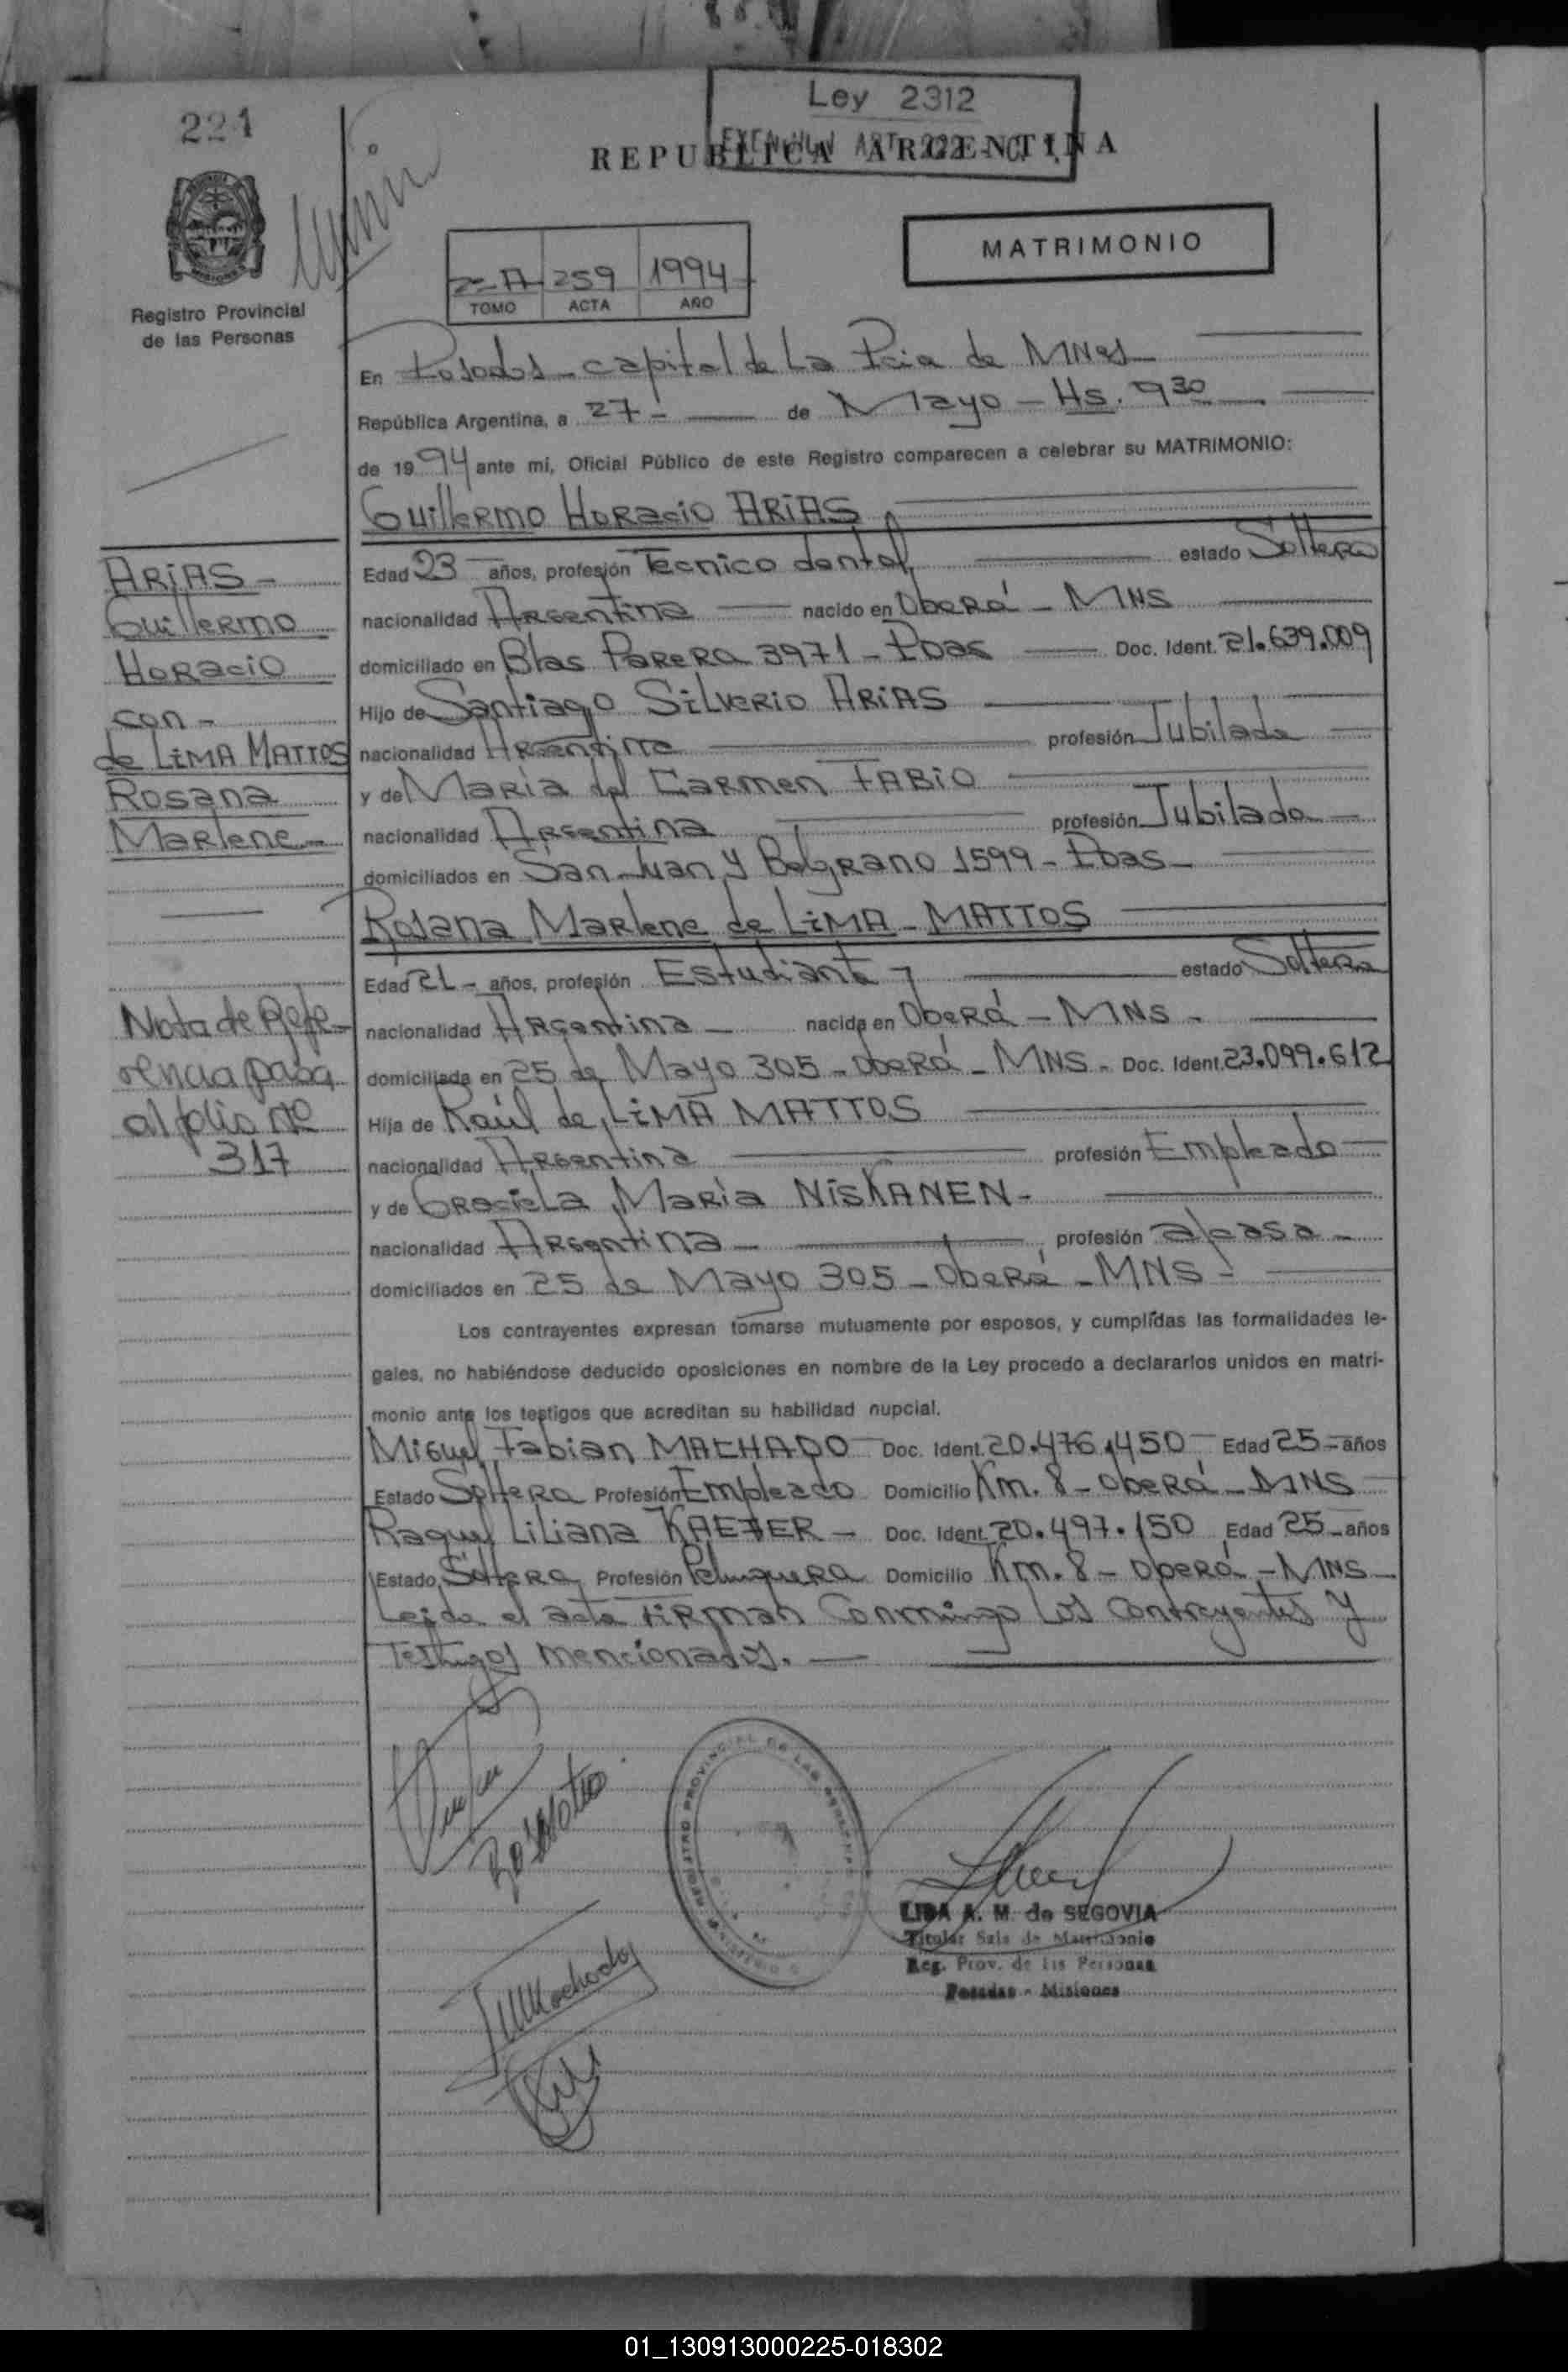 221
Ley 2312
REPUBLICA ARGENTINA
MATRIMONIO
2-A 259 1994
TOMO ACTA AÑO
Registro Provincial
de las Personas
En Posadas - capital de La Pcia de MNes
República Argentina, a 27 - de Mayo - Hs. 9 30
de 1994 ante mi, Oficial Público de este Registro comparecen a celebrar su MATRIMONIO:
Guillermo Horacio ARIAS
ARIAS -
Guillermo
Horacio
con -
de LIMA MATTOS
Rosana
Marlene -
Edad 23 años, profesión Tecnico dental estado Soltero
nacionalidad Argentina nacido en Oberá - MNS
domiciliado en Blas Parera 3971 - Pdas Doc. Ident. 21.639.009
Hijo de Santiago Silverio ARIAS
nacionalidad Argentina profesión Jubilado
y de María del Carmen FABIO
nacionalidad Argentina profesión Jubilada
domiciliados en San Juan y Belgrano 1599 - Pdas -
Rosana Marlene de LIMA - MATTOS
Edad 21 - años, profesión Estudiante - estado Soltera
nacionalidad Argentina - nacida en Oberá - MNS -
domiciliada en 25 de Mayo 305 - Oberá - MNS - Doc. Ident. 23.099.612
Hija de Raúl de LIMA MATTOS
nacionalidad Argentina profesión Empleado
y de Graciela María NISKANEN -
nacionalidad Argentina - profesión a/casa -
domiciliados en 25 de Mayo 305 - Oberá - MNS -
Nota de Refe-
rencia pasa
al folio Nº
317
Los contrayentes expresan tomarse mutuamente por esposos, y cumplídas las formalidades le-
gales, no habiéndose deducido oposiciones en nombre de la Ley procedo a declararlos unidos en matri-
monio ante los testigos que acreditan su habilidad nupcial.
Miguel Fabian MACHADO Doc. Ident. 20.476.450 Edad 25 - años
Estado Soltero Profesión Empleado Domicilio Km. 8 - Oberá - MNS
Raquel Liliana KAEFER - Doc. Ident. 20.497.150 Edad 25 - años
Estado Soltera Profesión Peluquera Domicilio Km. 8 - Oberá - MNS -
Leida el acta firman conmingo los contrayentes y
Testigos mencionados. -
LIDA A. M. de SEGOVIA
Titular Sala de Matrimonio
Reg. Prov. de las Personas
Posadas - Misiones
01_130913000225-018302